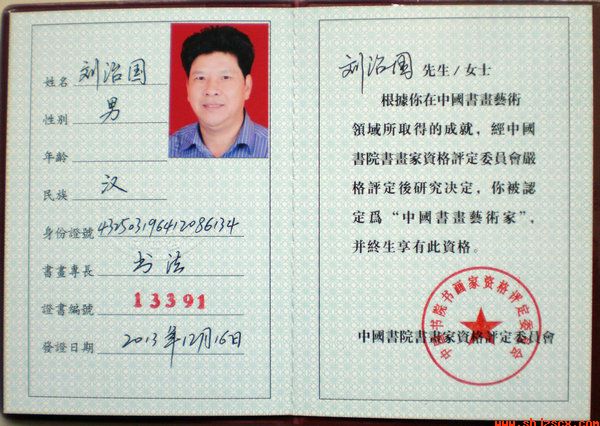 姓名 刘治国
性別 男
年齡
民族 汉
身份證號 432503196412086134
書畫專長 书法
證書編號 13391
發證日期 2013年12月16日
刘治国 先生/女士
根據你在中國書畫藝術
領域所取得的成就，經中國
書院書畫家資格評定委員會嚴
格評定後研究决定，你被認
定爲“中國書畫藝術家”，
并終生享有此資格。
中國書院書畫家資格評定委員會
中国书院书画家资格评定委员会
www.shjzscx.com